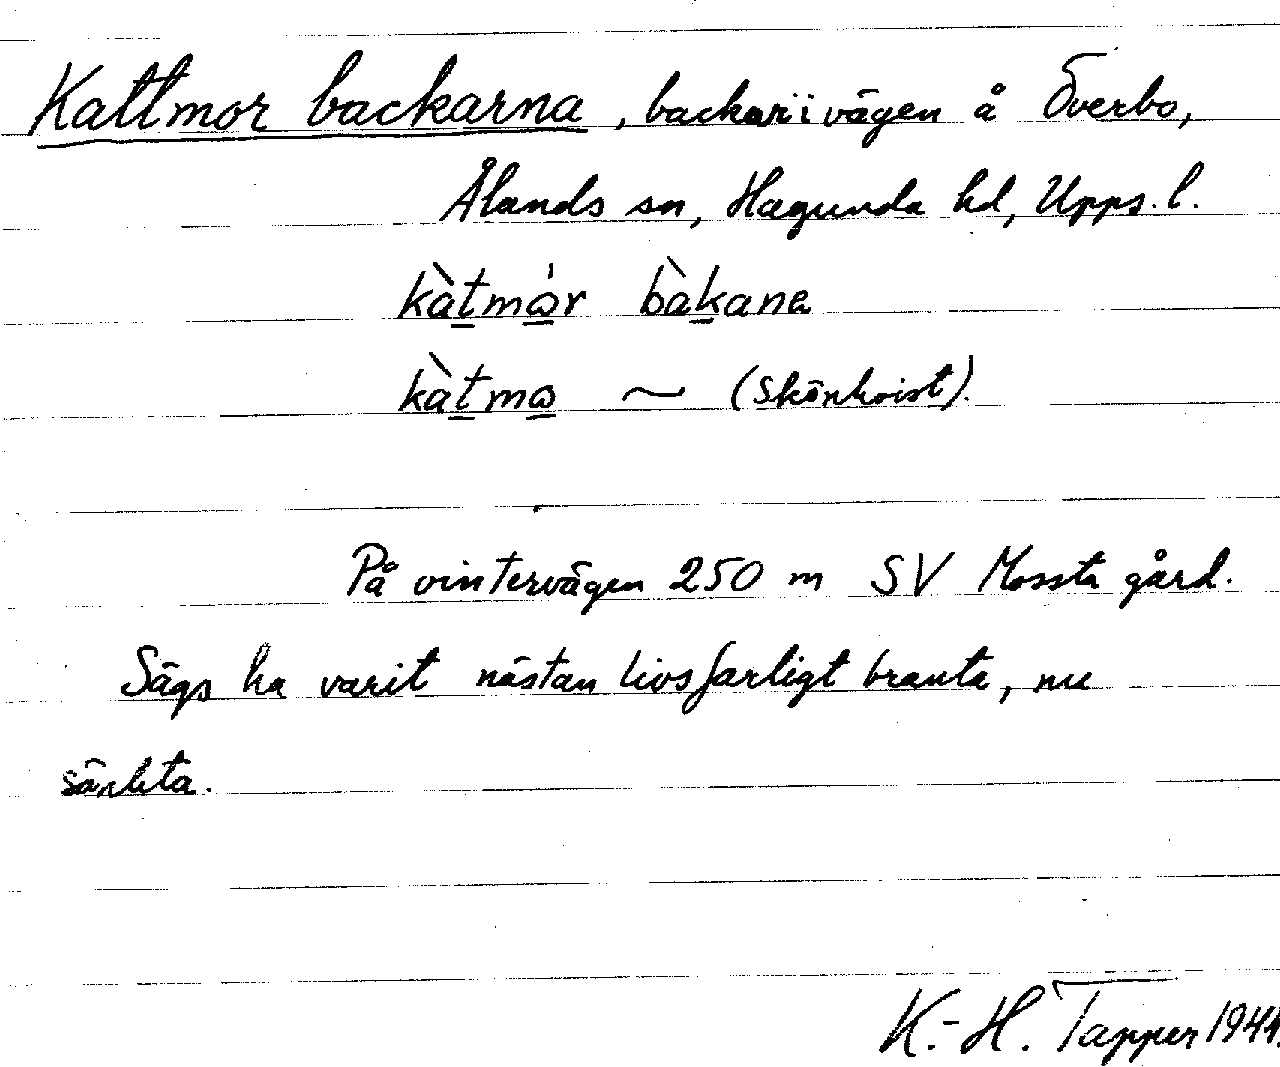 Kattmor backarna, backar i vägen å Överbo,
Ålands sn, Hagunda hd, Upps. l.
kàtmὼr bàkana
kàtmω ~ (Skönkvist).
På vintervägen 250 m SV Mossta gård.
Sägs ha varit nästan livsfarligt branta, nu
sänkta.
K.-H. Tapper 1944.